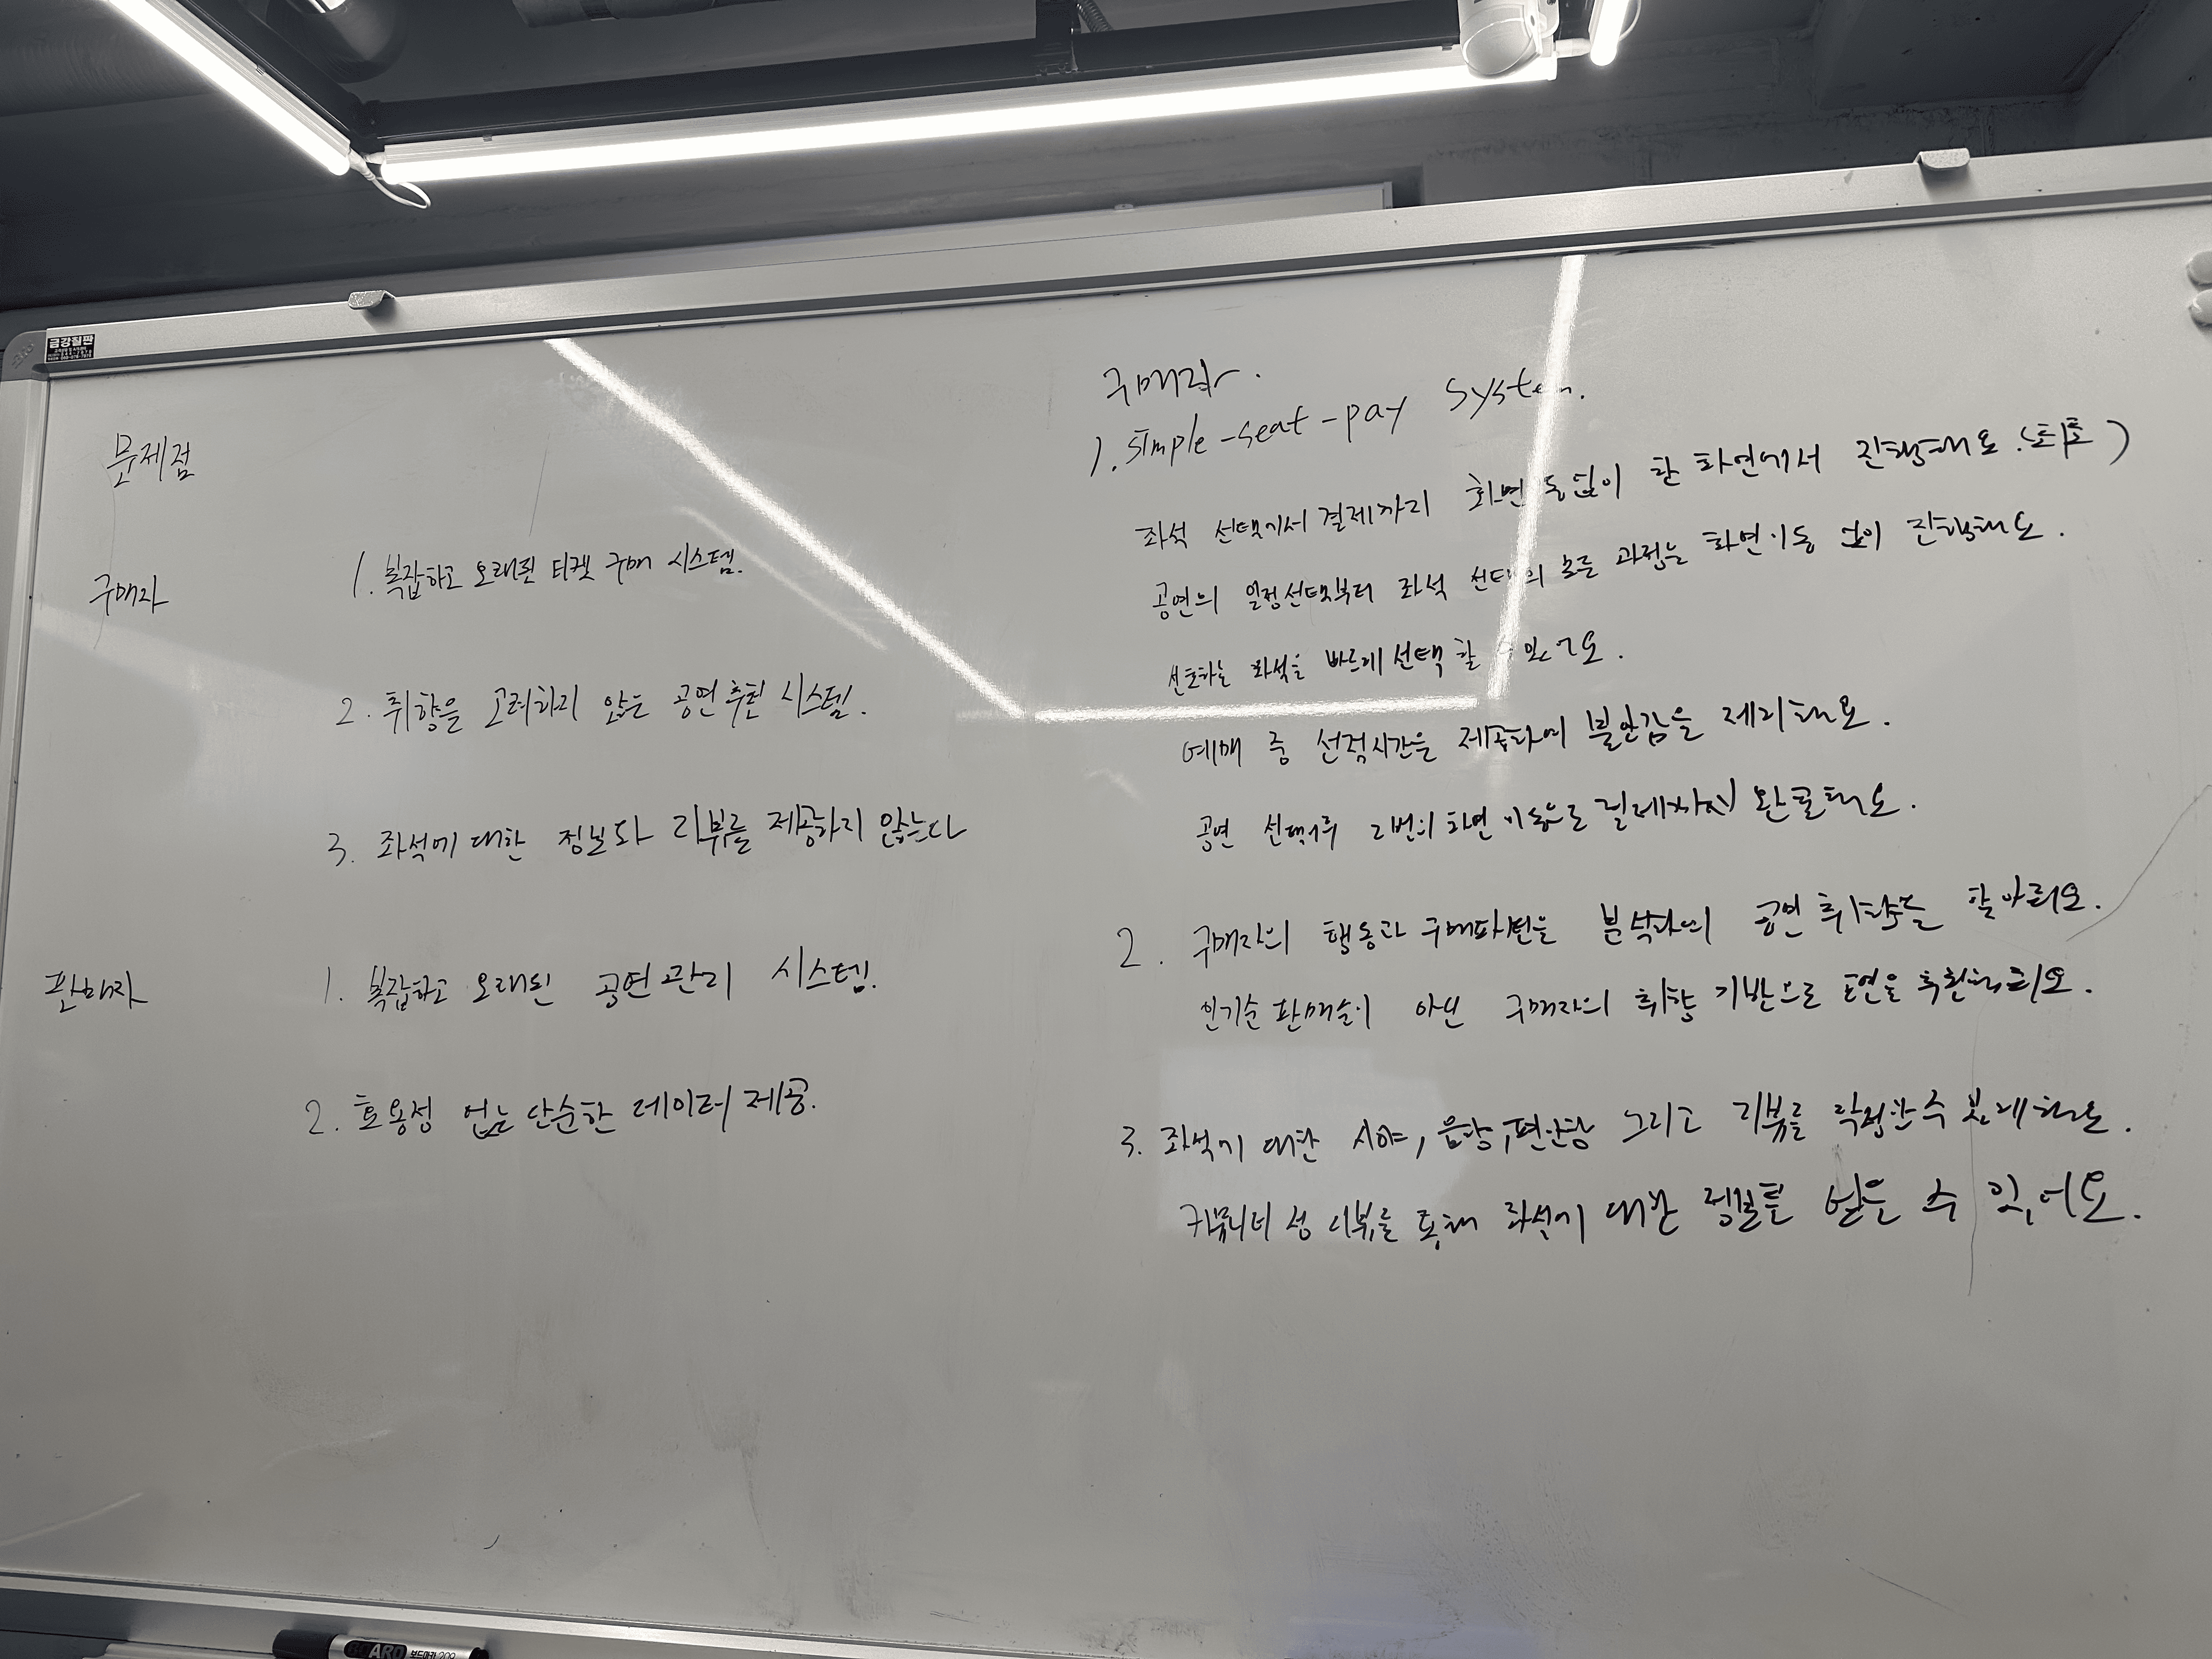 금강칠판
문제점
구매자
1. 복잡하고 오래된 티켓 구매 시스템.
2. 취향을 고려하지 않는 공연 추천 시스템.
3. 좌석에 대한 정보와 리뷰를 제공하지 않는다
판매자
1. 복잡하고 오래된 공연관리 시스템.
2. 효용성 없는 단순한 데이터 제공.
구매자.
1. simple-seat-pay system.
좌석 선택에서 결제까지 화면 이동없이 한 화면에서 진행해요. (최초)
공연의 일정선택부터 좌석 선택의 모든 과정을 화면이동 없이 진행해요.
선호하는 좌석을 빠르게 선택 할 수 있어요.
예매 중 선점시간을 제공하여 불안감을 제거해요.
공연 선택후 2번의 화면 이동으로 결제까지 완료해요.
2. 구매자의 행동과 구매패턴을 분석하여 공연 취향을 알아줘요.
인기순 판매순이 아닌 구매자의 취향 기반으로 공연을 추천해줘요.
3. 좌석에 대한 시야, 음향, 편안함 그리고 리뷰를 작성할수 있게해요.
커뮤니티 성 리뷰를 통해 좌석에 대한 정보를 얻을 수 있어요.
ARD